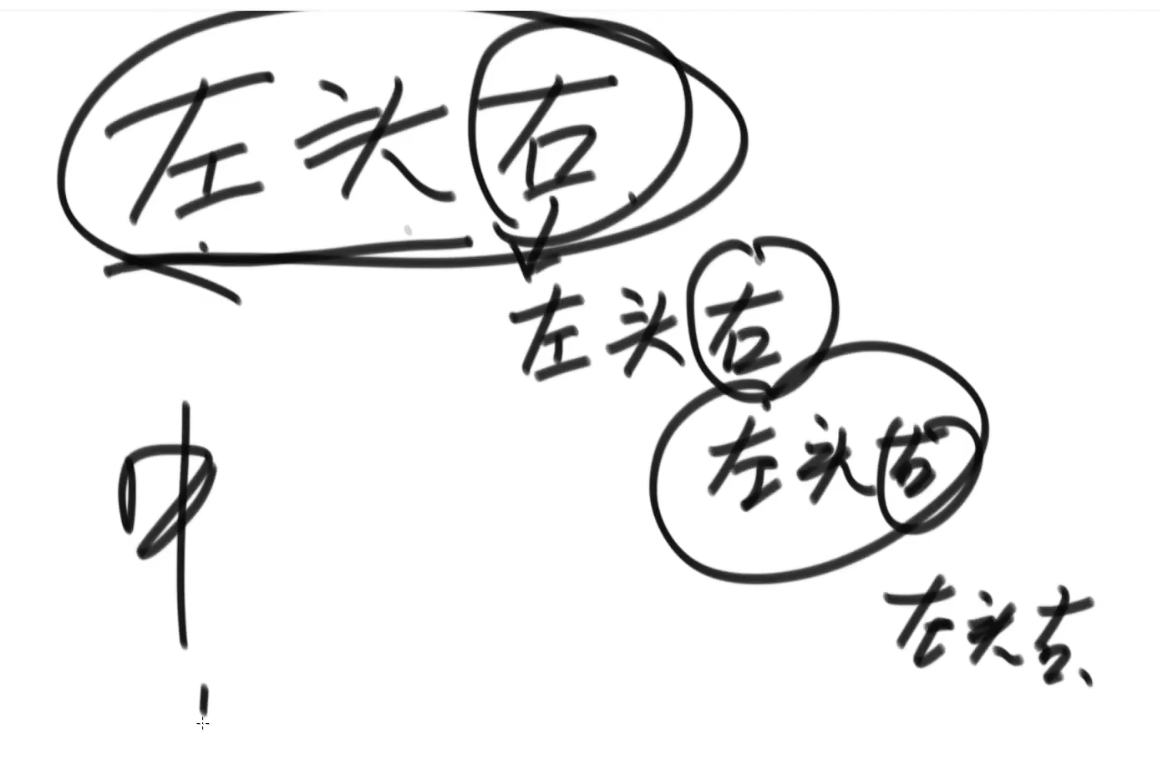 左头右
左头右
左头右
中
左头右